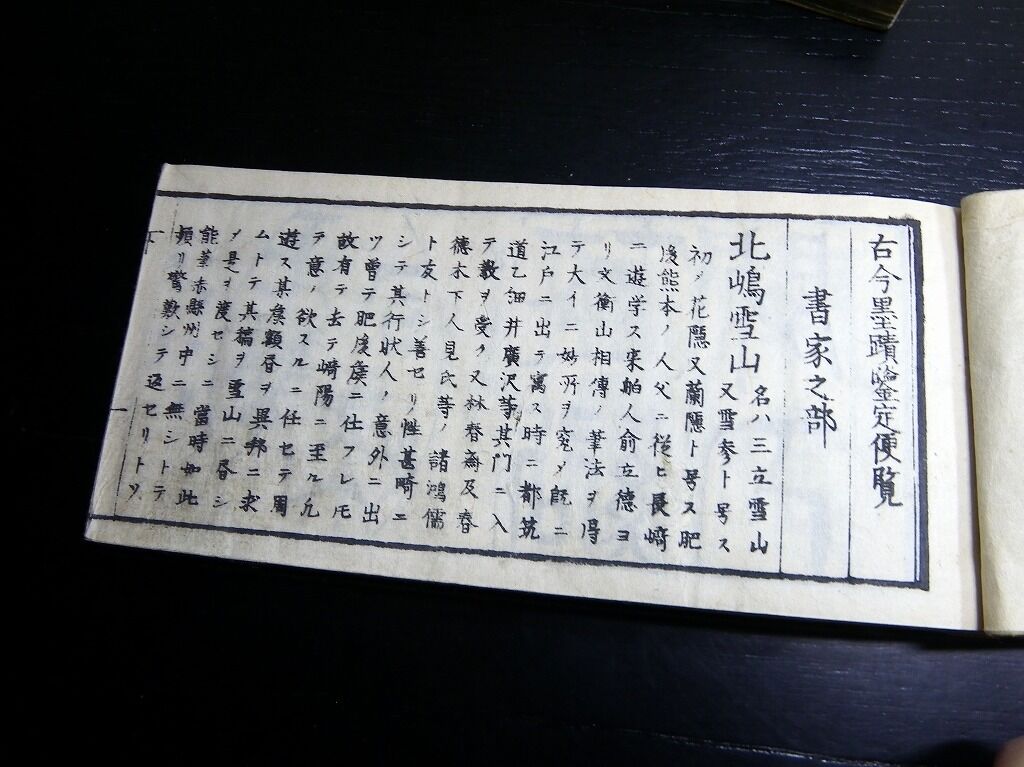 古今墨蹟鑒定便覧
書家之部
北嶋雪山 名ハ三立雪山
又雪参ト号ス
初メ花隠又蘭隠ト号ス肥
後熊本ノ人父ニ従ヒ長﨑
ニ遊学ス来舶人俞立德ヨ
リ文衡山相傳ノ筆法ヲ得
テ大イニ妙所ヲ究メ既ニ
江戸ニ出テ寓ス時ニ都筑
道乙細井廣沢等其門ニ入
テ教ヲ受ク又林春齋及春
德木下人見氏等ノ諸鴻儒
ト友トシ善セリ性甚畸ニ
シテ其行状人ノ意外ニ出
ツ曽テ肥後矦ニ仕フレ𪜈
故有テ去テ崎陽ニ至ル凢
テ意ノ欲スルニ任セテ周
遊ス某矦顯昏ヲ異邦ニ求
ムトテ其稿ヲ雪山ニ昏シ
メ是ヲ度セシニ當時如此
能筆赤縣州中ニ無シトテ
頻リ驚歎シテ返セリトソ